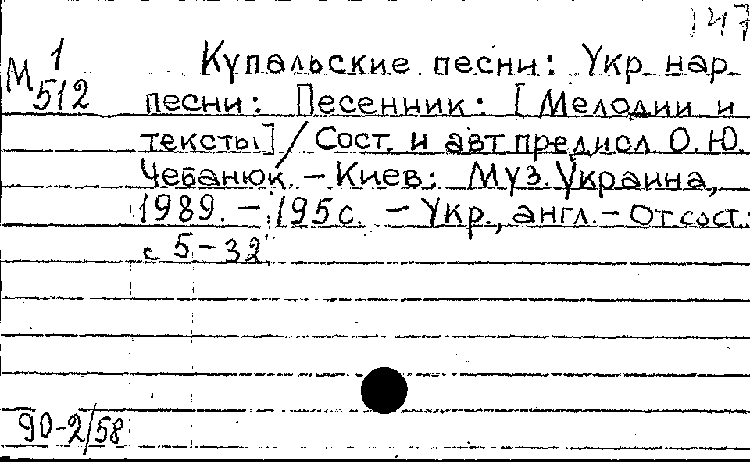 147
М 1
512
Купальские песни: Укр нар
песни: Песенник: [Мелодии и
тексты] / Сост. и авт предисл О.Ю.
Чебанюк. – Киев: Муз. Украина,
1989. – 195 с. – Укр., англ. – От сост.:
с 5–32
90-2/58